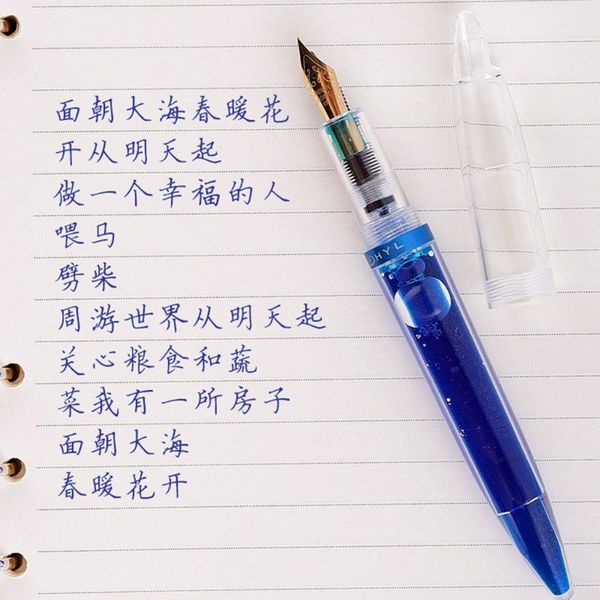 面朝大海春暖花
开从明天起
做一个幸福的人
喂马
劈柴
周游世界从明天起
关心粮食和蔬
菜我有一所房子
面朝大海
春暖花开
DHYL